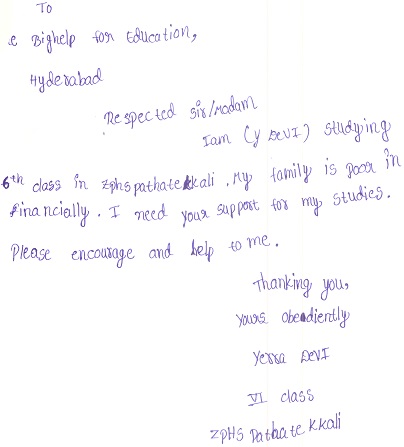 To
e Bighelp for Education,
Hyderabad
Respected sir/madam
Iam (Y DEVI) studying
6th class in zphs pathatekkali. My family is poor in
Financially. I need your support for my studies.
Please encourage and help to me.
Thanking you,
yours obeadiently
Yerra DEVI
VI class
ZPHS Pathate Kkali